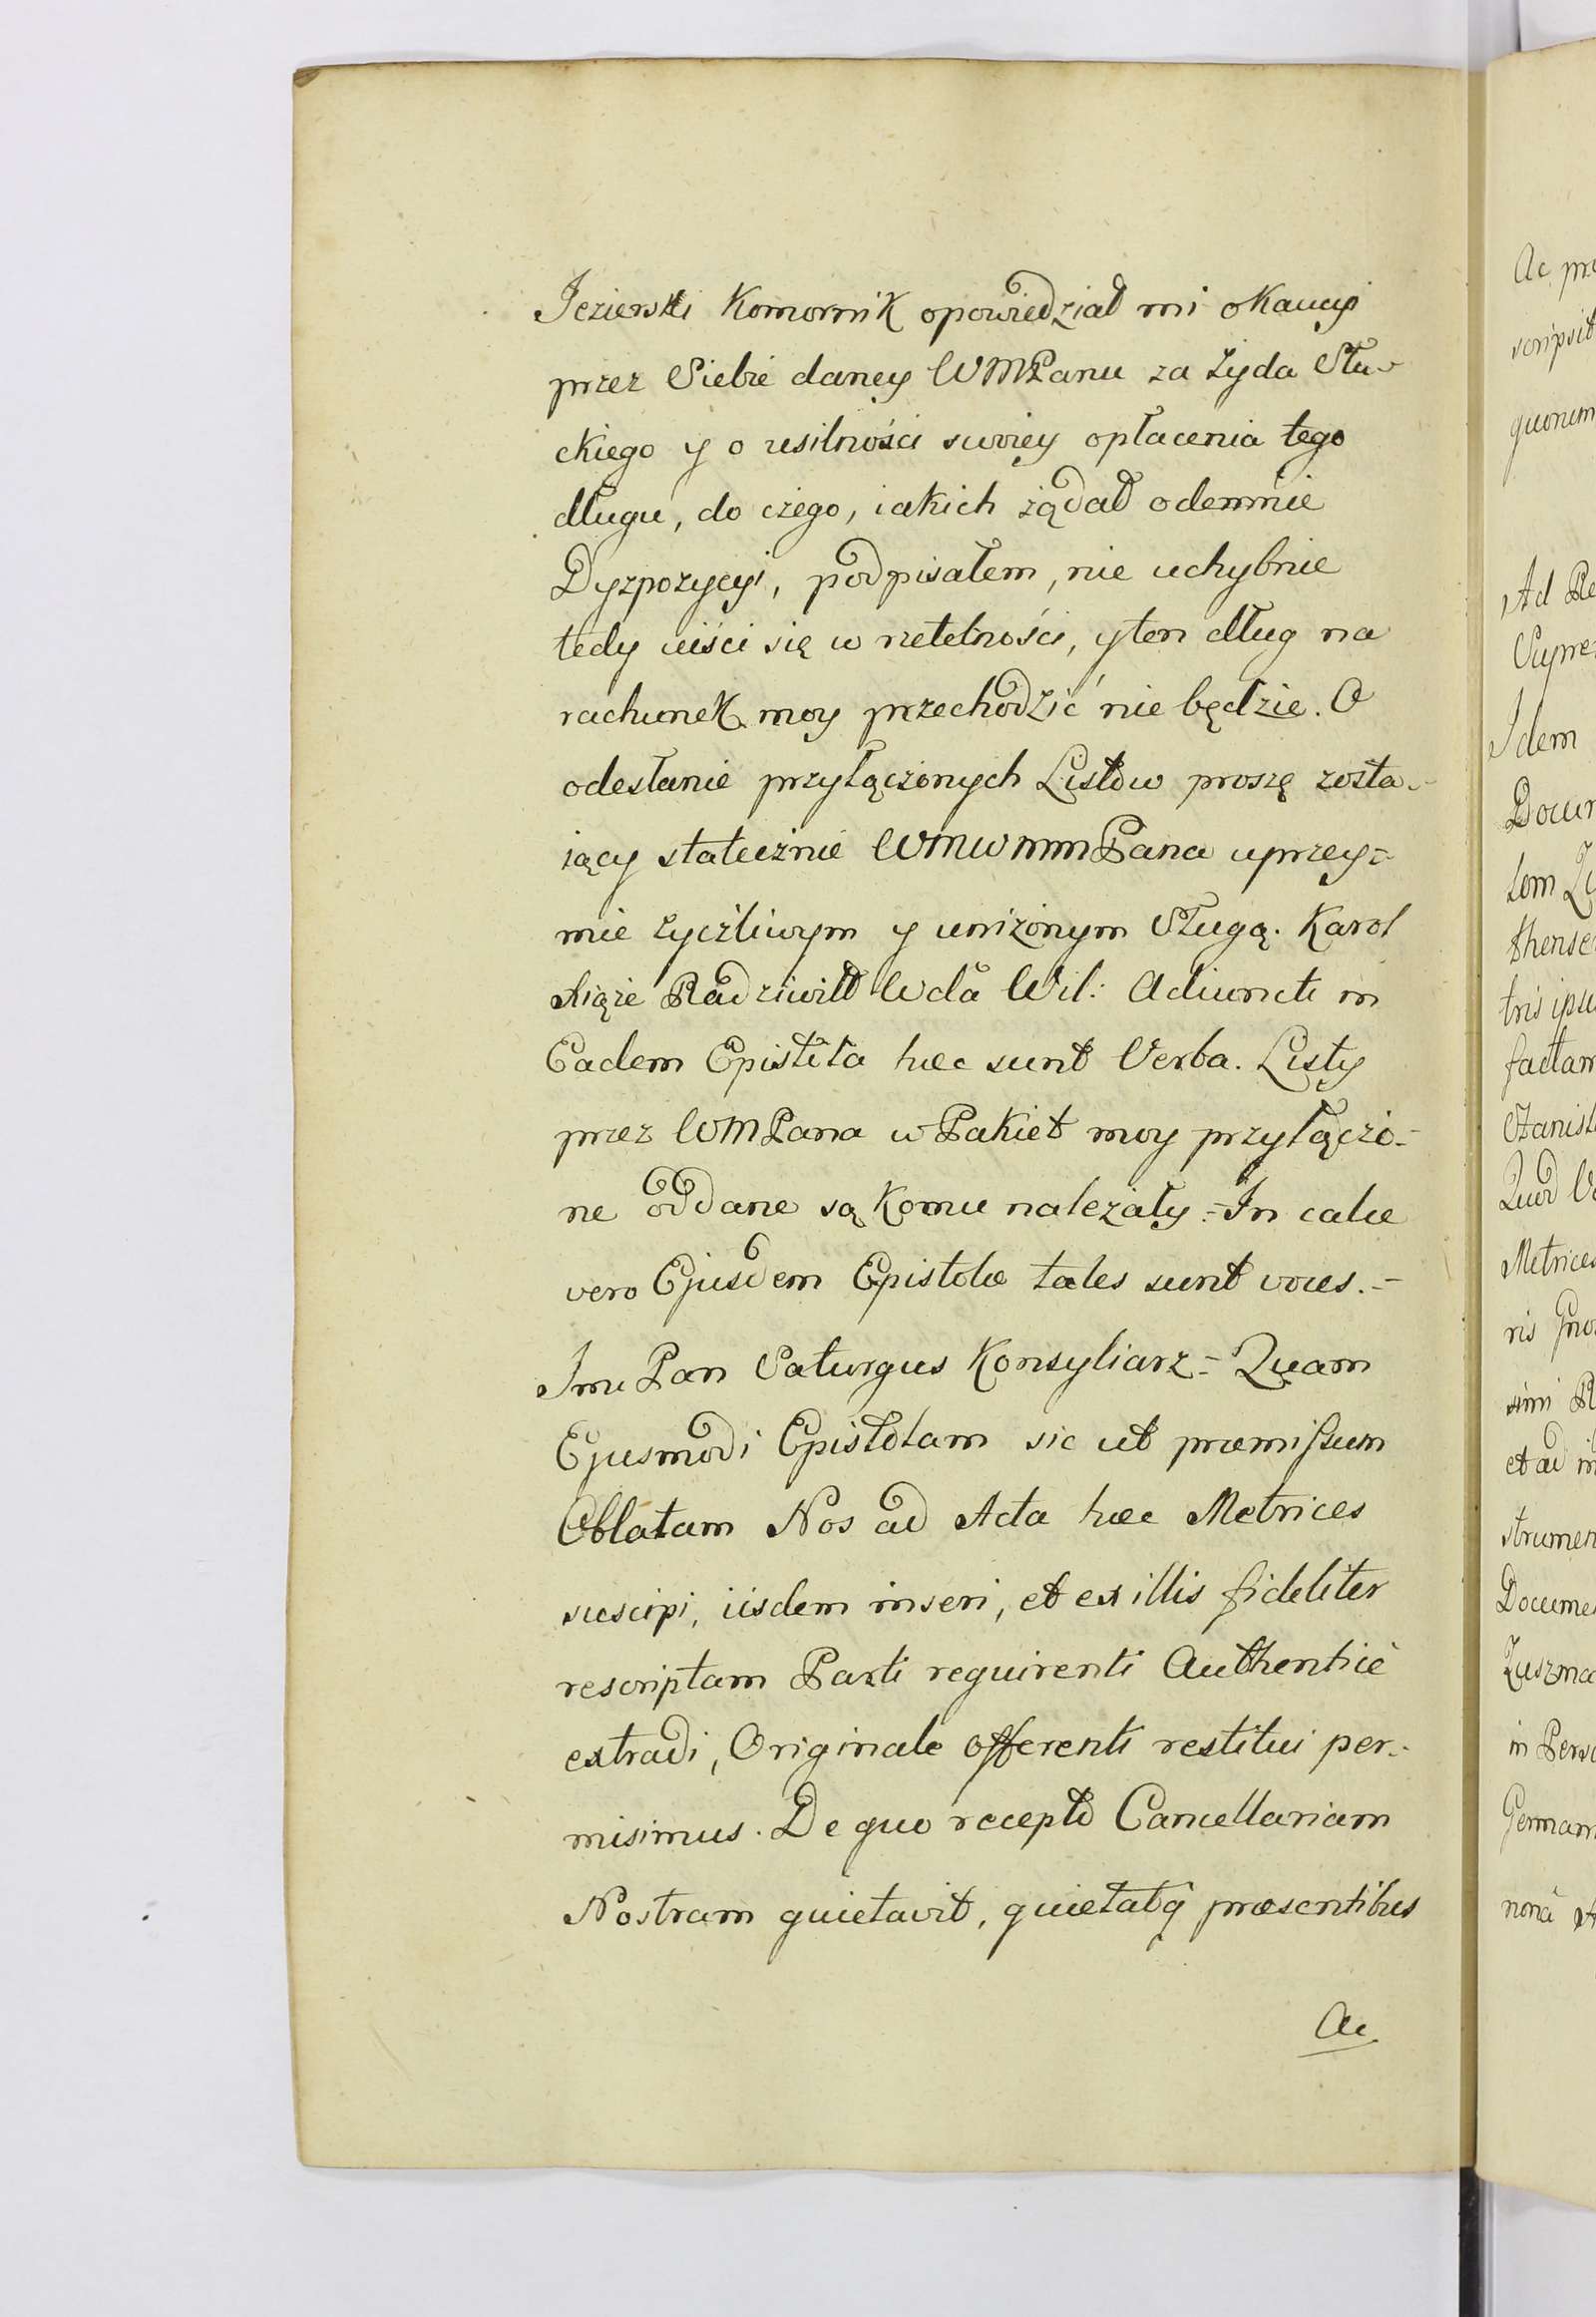 Jezierski Komornik opowiedział mi o Kaucyi
przez Siebie daney WMPanu za Żyda Słu-
ckiego y o usilności swoiey opłacenia tego
długu, do czego, iakich żądał odemnie
Dyzpozycyi, podpisałem, nie uchybnie
tedy uiści się w rzetelności, y ten dług na
rachunek moy przechodzić nie będzie. O
odesłanie przyłączonych Listow proszę zosta-
iący statecznie WMWMMPana uprzey=
mie życzliwym y uniżonym Sługą. Karol
Xiąże Radziwiłł Wda Wil: Adiuncti in
Eadem Epistola hæc sunt Verba. Listy
przez WMPana w Pakiet moy przyłączo=
ne oddane są Komu należały.=In calce
vero Ejusdem Epistolæ tales sunt voces.=
Jmc Pan Saturgus Konsyliarz= Quam
Ejusmodi Epistolam sic ut præmissum
Oblatam Nos ad Acta hæc Metrices
suscipi, iisdem inseri, et ex illis fideliter
rescriptam Parti requirenti Authenticè
extradi, Originale offerenti restitui per=
misimus. De quo recepto Cancellariam
Nostram quietavit, quietatq præsentibus
Ac
Ac
scripsit
quorum
Ad Re
Supre
Idem
Docum
tris ipsi
factam
Stanisl
Quod
Metrices
ris
simi R
et ad in
strumen
Docume
in Perso
German